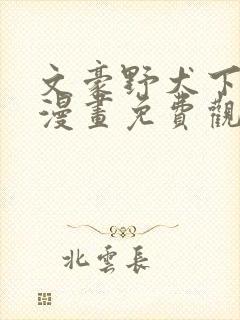 文豪野犬下
漫畫免費觀
北雲長